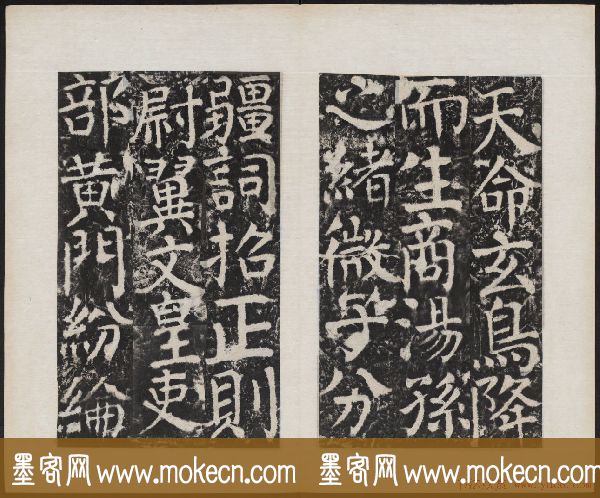 天命玄鳥降
而生商湯孫
之緒微子分
疆詞招正則
尉翼文皇吏
部黄門紛綸
墨客网 www.mokecn.com 墨客网 www.mokecn.com